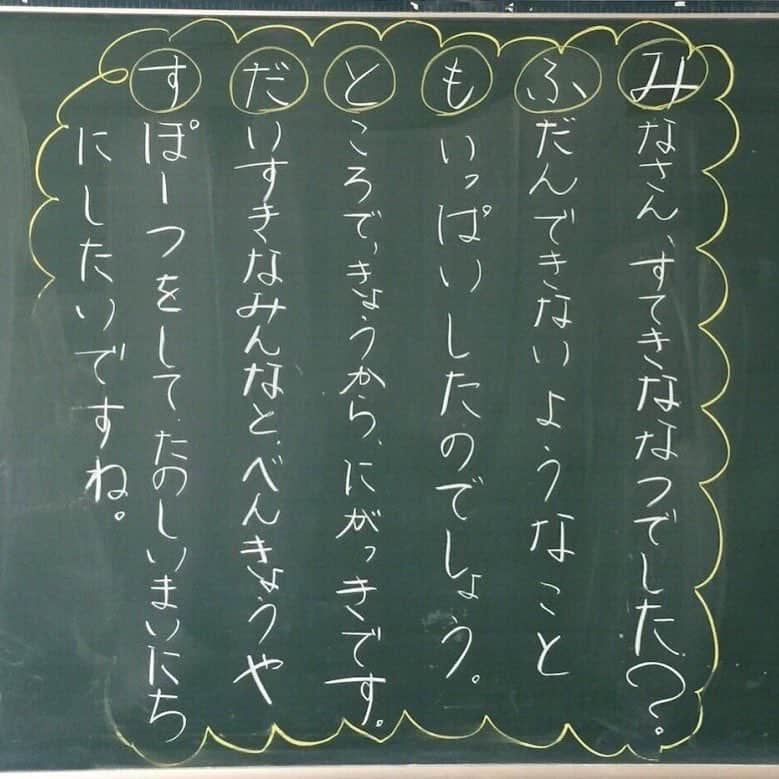 みなさん、すてきななつでした?。
ふだんできないようなこと
もいっぱいしたのでしょう。
ところで、きょうから、にがっきです。
だいすきなみんなと、べんきょうや
すぽーつをして、たのしいまいにち
にしたいですね。